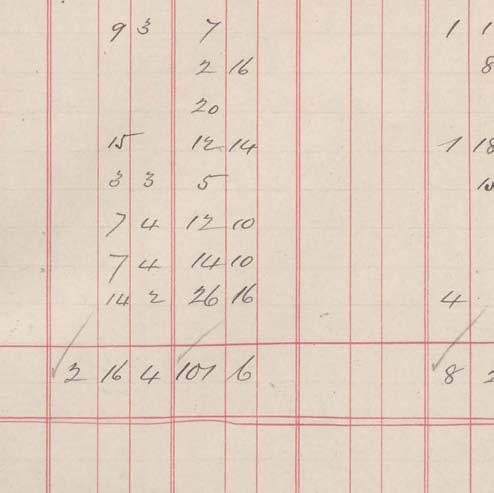 9 3 7 1 1
2 16 8
20
15 12 14 1 18
3 3 5 10
7 4 12 10
7 4 14 10
14 2 26 16 4
2 16 4 101 6 8